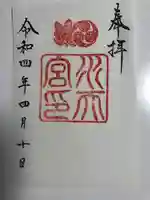 奉拝
水天
宮印
令和四年四月十日